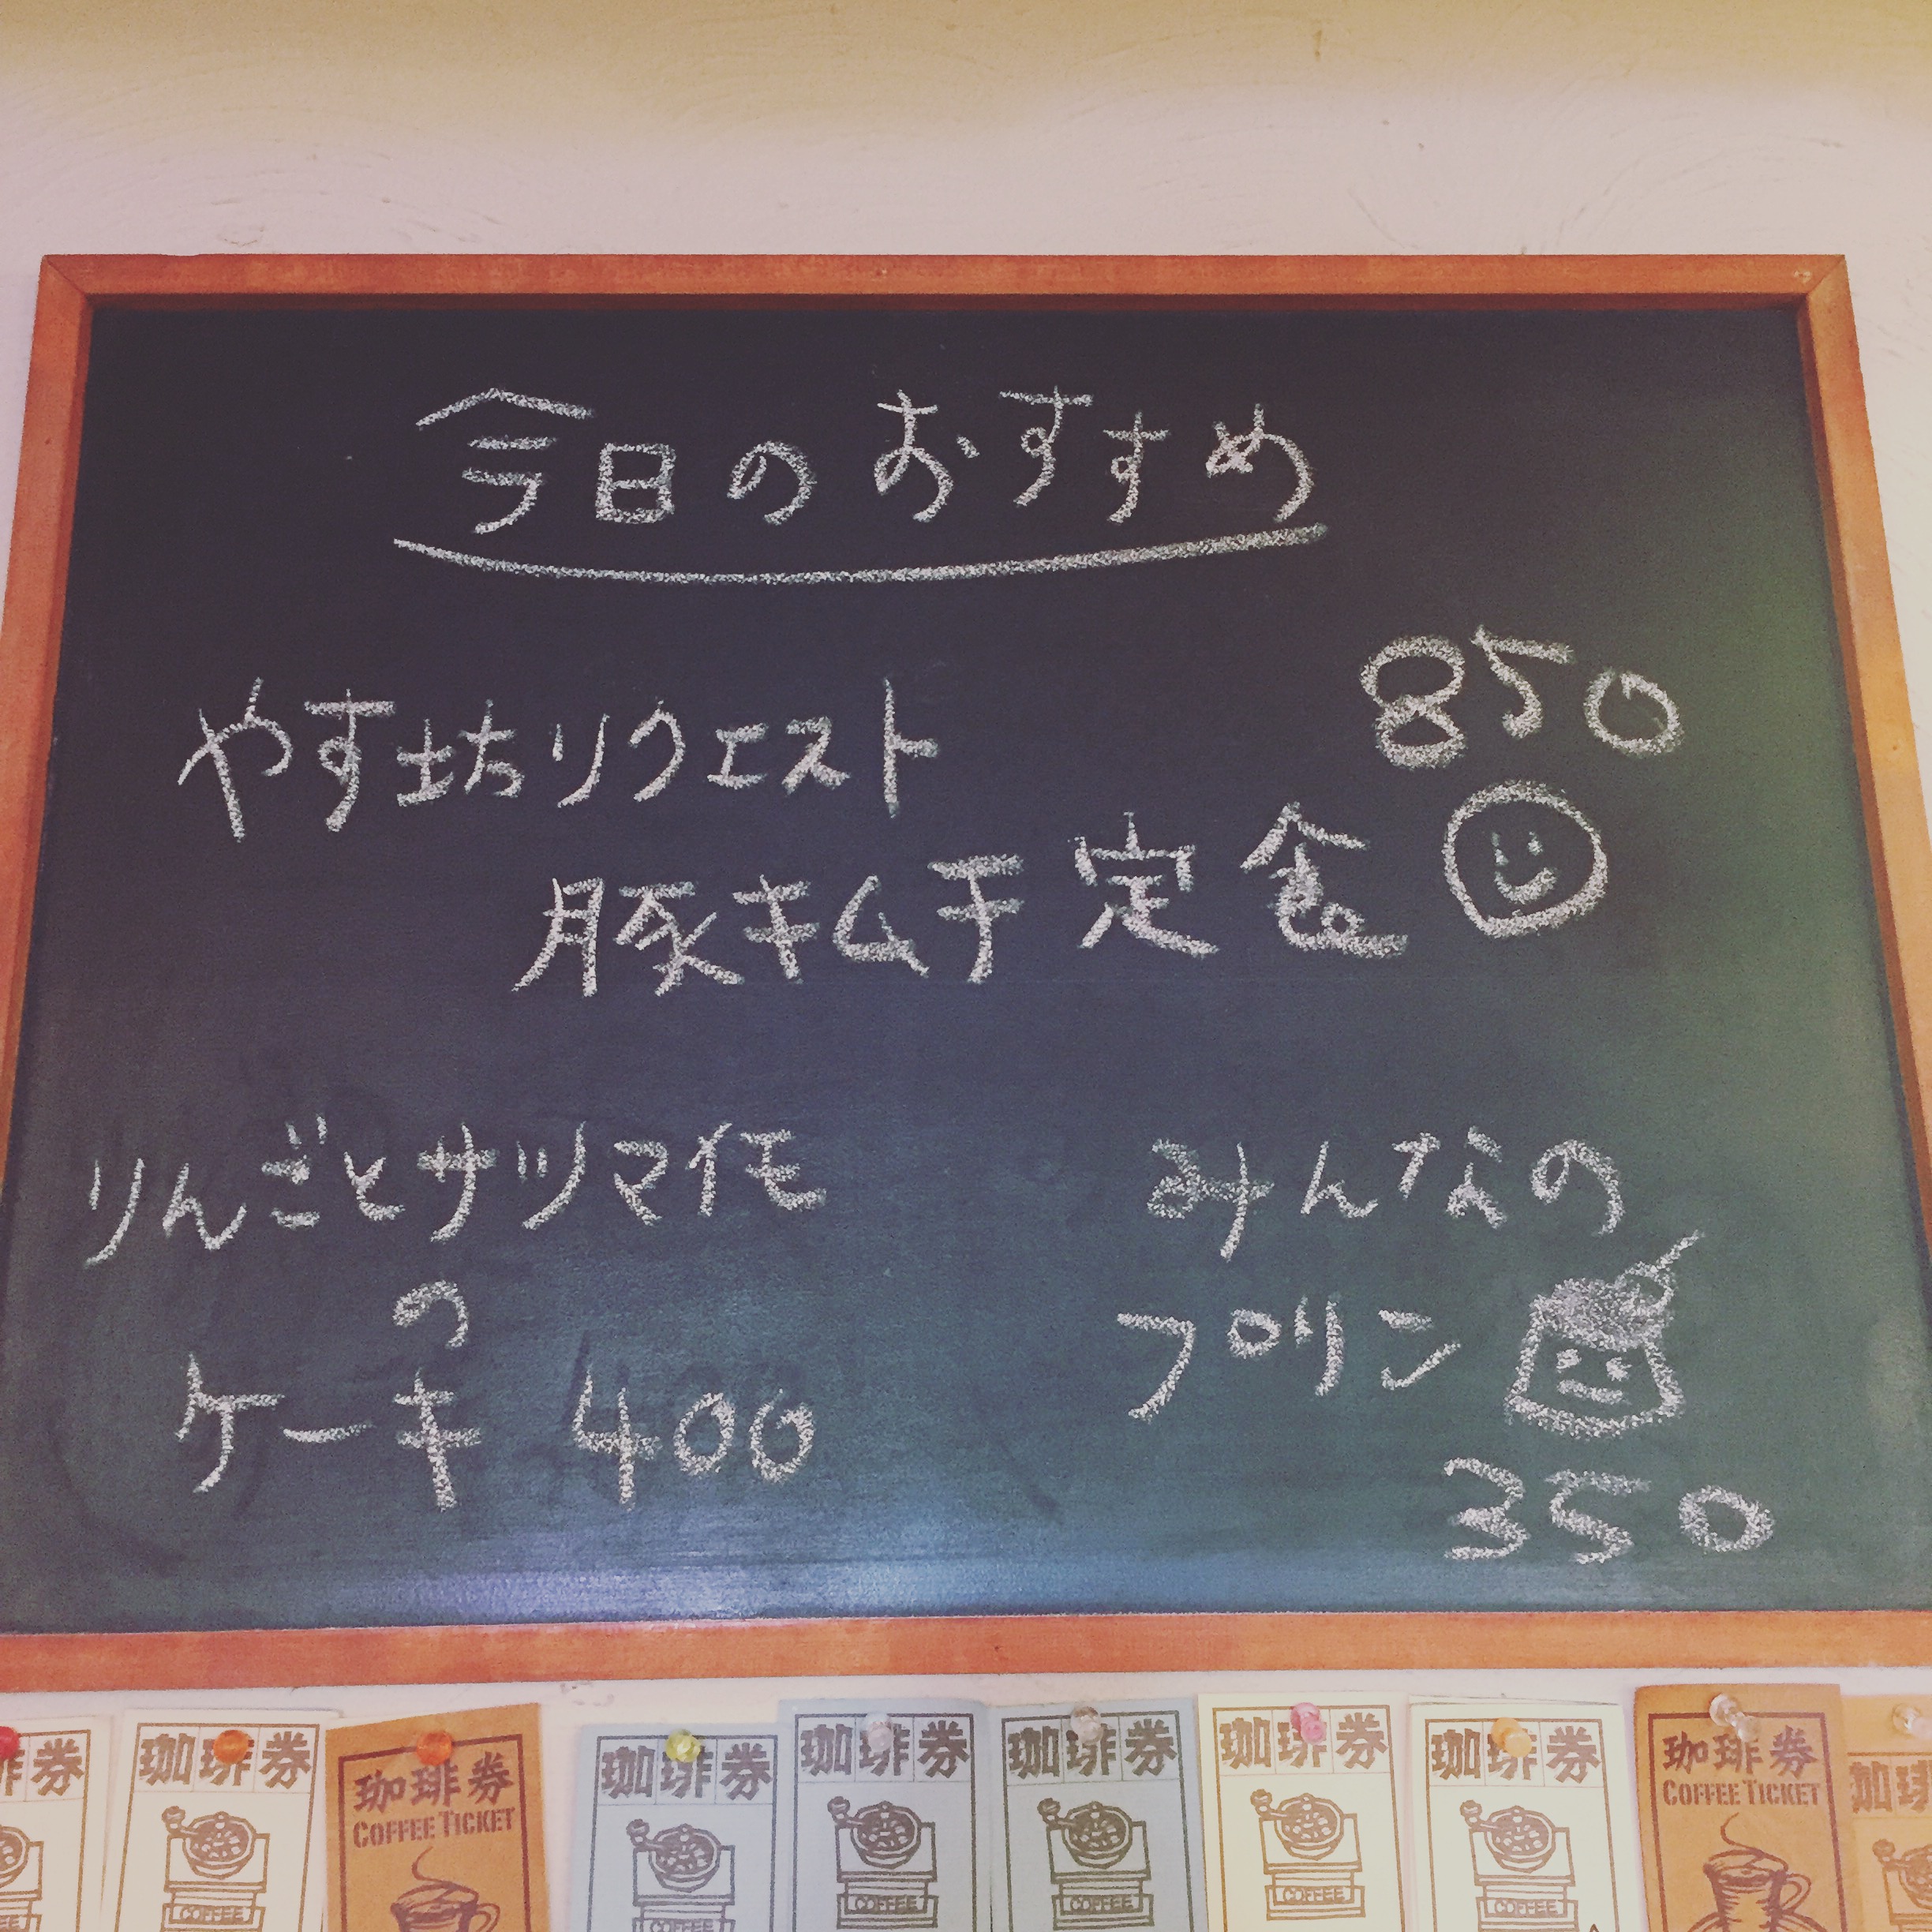 今日のおすすめ
やす坊リクエスト 850
豚キムチ定食
りんごとサツマイモ
の
ケーキ 400
みんなの
プリン
350
琲券
珈琲券
COFFEE
珈琲券
COFFEE TICKET
珈琲券
COFFEE
珈琲券
COFFEE
珈琲券
COFFEE
珈琲券
COFFEE
珈琲券
COFFEE
珈琲券
COFFEE TICKET
珈琲